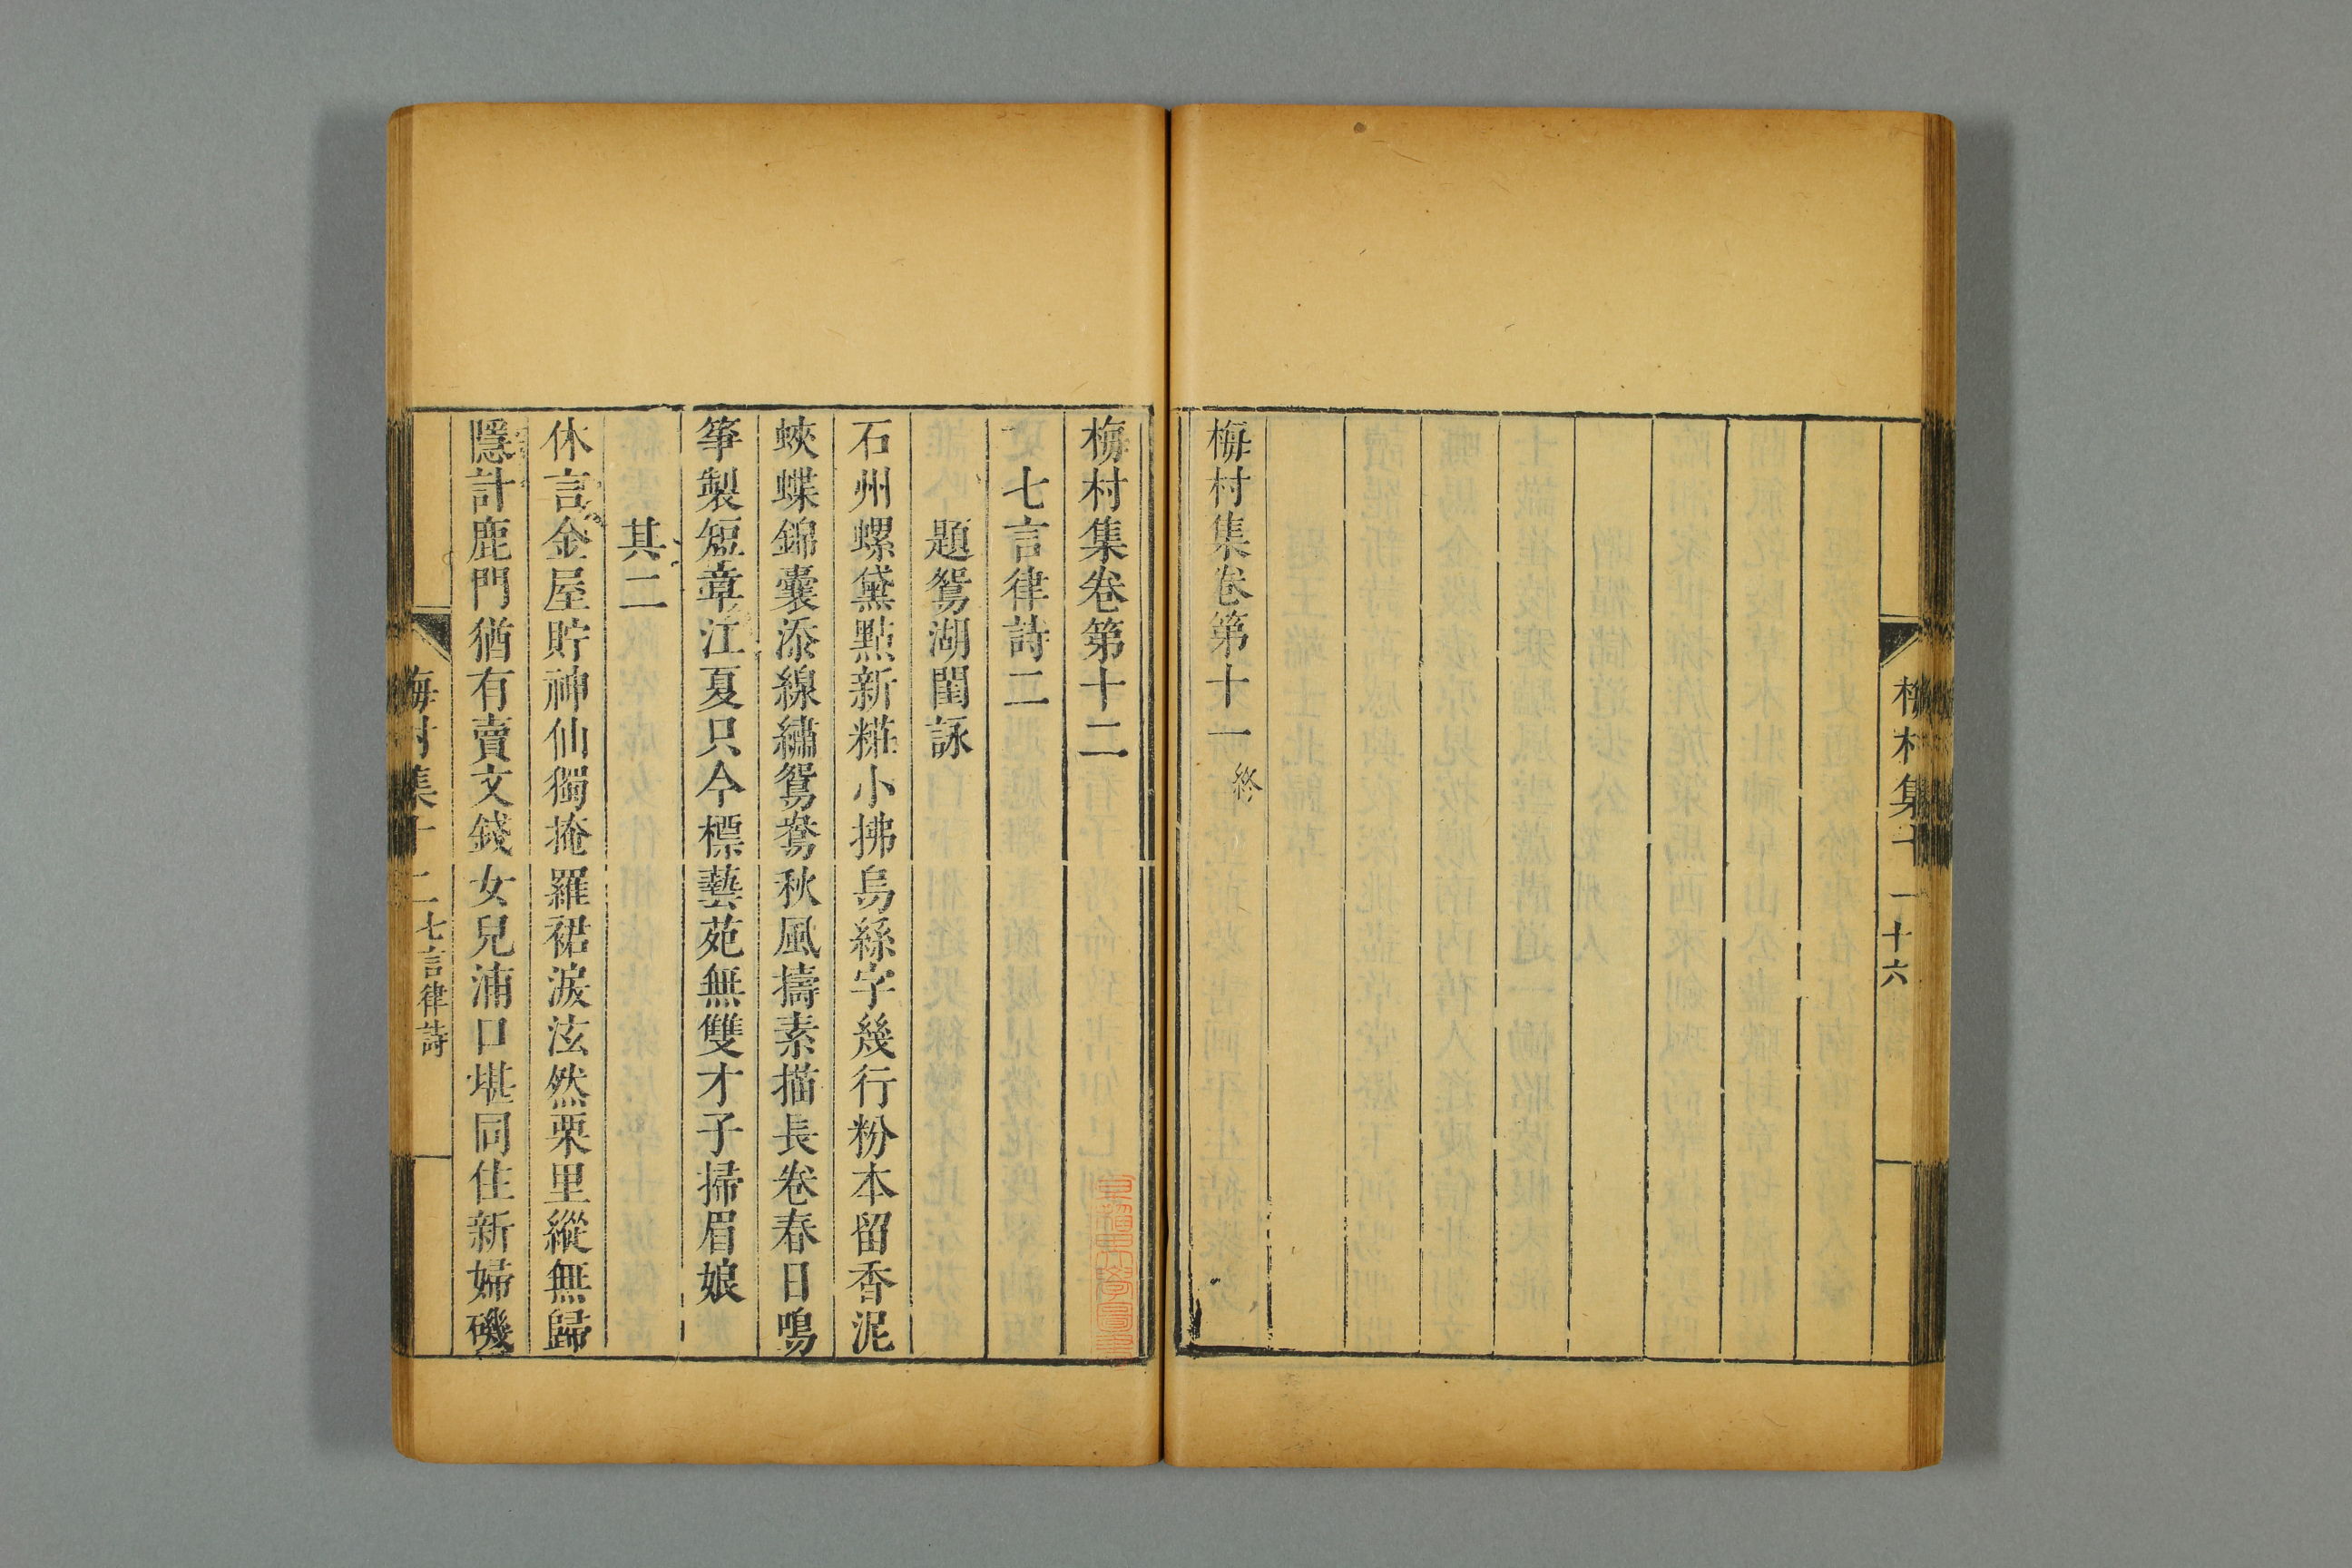 梅村集卷第十一終
梅村集十一
十六
梅村集卷第十二
七言律詩二
題鴛湖閨詠
石州螺黛點新糚小拂烏絲字幾行粉本留香泥
蛺蝶錦囊添線繡鴛鴦秋風擣素描長卷春日鳴
箏製短章江夏只今標藝苑無雙才子掃眉娘
其二
休言金屋貯神仙獨掩羅裙淚泫然栗里縱無歸
隱計鹿門猶有賣文錢女兒浦口堪同住新婦磯
梅村集十二
七言律詩